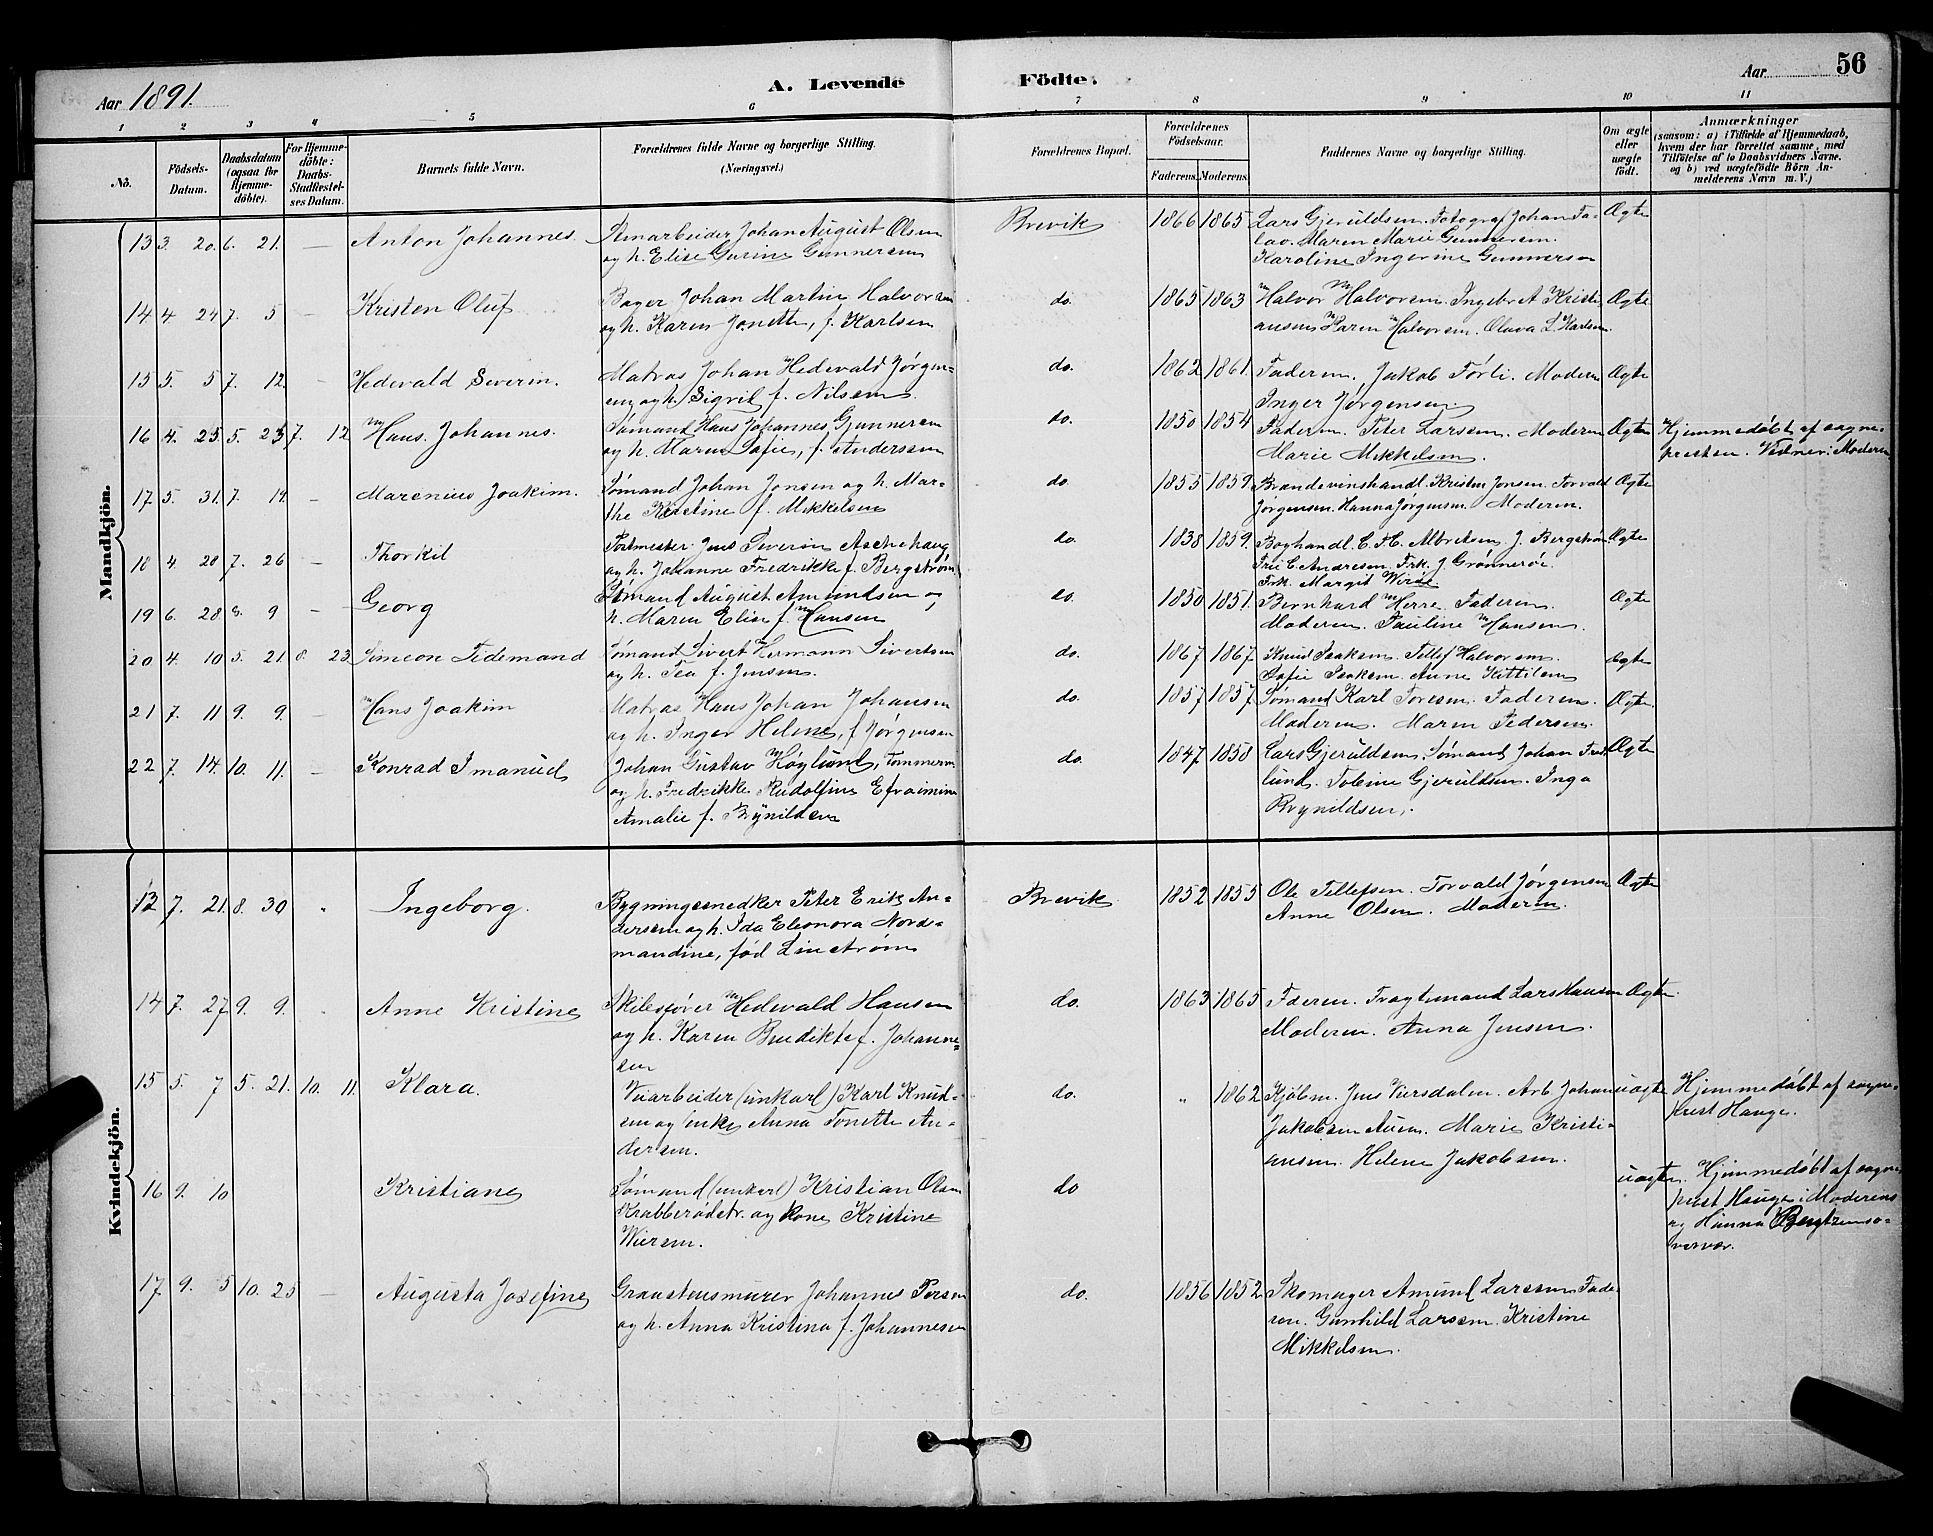 Aar 1891.
A. Levende Födte.
Aar 56
1 2 3 4 5 6 7 8 9 10 11
No.
Födsels-Datum.
Daabsdatum (ogsaa for Hjemme-döbte).
For Hjemme-döbte: Daabs-Stadfestel-ses Datum.
Barnets fulde Navn.
Forældrenes fulde Navne og borgerlige Stilling.
(Næringsvei.)
Forældrenes Bopæl.
Forældrenes Födselsaar.
Faderens. Moderens.
Faddernes Navne og borgerlige Stilling.
Om ægte eller uægte födt.
Anmærkninger
(saasom: a) i Tilfælde af Hjemmedaab,
hvem der har forrettet samme, med
Tilföielse af to Daabsvidners Navne.
og b) ved uægtefödte Börn An-
melderens Navn m. V.)
Mandkjön.
13 3. 20. 6. 21. — Anton Johannes. Stenarbeider Johan August Olsen Brevik 1866 1865 Lars Gjeruldsen. Fotograf Johan Ta- Ægte
og h. Elise Gurine Gunnersen lav. Maren Marie Gunnersen.
Karoline Ingerine Gunnersen
14 4. 24 7. 5 — Kristen Oluf Bager Johan Martin Halvorsen do. 1865 1863 Halvor Halvorsen. Ingebr. A Kristi- Ægte
og h. Karen Jonette, f. Karlsen ansen Karen Halvorsen. Olava L. Karlsen.
15 5. 5 7. 12 — Hedevald Severin. Matros Johan Hedevald Jørgen- do. 1862 1861. Faderen. Jakob Törli. Moderen Ægte
sen og h. Sigrid f. Nilsen. Inger Jørgensen.
16 4. 25. 5. 23 7. 12 Hans. Johannes. Sømand Hans Johannes Gunnersen do. 1850 1854 Faderen. Peter Larsen. Moderen Ægte Hjemmedøbt af sogne-
og h. Maren Sofie, f. Anderssen Marie Mikkelsen. presten. Vidner: Moderen
17 5. 31. 7. 14 — Marenius Joakim. Sømand Johan Jensen og h. Mar- do. 1855 1859. Brændevinshandl. Kristen Jensen. Torvald Ægte
the Kristine f. Mikkelsen Jørgensen. Hanna Jørgensen. Moderen.
18 4 28 7. 26 — Thorkil Postmester Jens Severin Aschehaug do. 1838 1859. Boghandl. C. H. Albretsen. J. Bergstrøm Ægte
og h. Johanne Fredrikke f. Bergstrøm Frk. J. Grønnerøe.
Frk. Margit
19 6. 28 8. 9 — Georg Sømand August Amundsen og do. 1850 1851. Bernhard Herre. Faderen. Ægte
h. Maren Elise f. Hansen Moderen. Pauline Hansen.
20 4. 10 5. 21 8. 23 Simeon Tidemand Sømand Sivert Hermann Sivertsen do. 1867 1867 Knud Isaksen. Tellef Halvorsen. Ægte
og h. Tea f. Jensen. Sofie Isaksen. Anne Kittilsen
21 7. 11 9. 9. — Hans Joakim Matros Hans Johan Johansen do. 1857 1857 Sømand Karl Toresen. Faderen. Ægte.
og h. Inger Helene, f. Jørgensen Moderen. Maren Pedersen.
22 7. 14. 10. 11. — Konrad Imanuel Johan Gustav Høglund, Tømmerm. do. 1847 1858 Lars Gjeruldsen. Sømand Johan Ægte
og h. Fredrikke Rudolfine Efraimine lund. Tobine Gjeruldsen. Inga
Amalie f. Brynildsen Brynildsen.
Kvindekjön.
13 7. 21. 8. 30 „ Ingeborg. Bygningssnedker Peter Erik An- Brevik 1852 1855 Ole Tellefsen. Torvald Jørgensen Ægte
dersen og h. Ida Eleonora Nord- Anne Olsen. Moderen.
mandine, fød Linstrøm
14 7. 27 9. 9. „ Anne Kristine Skibsfører Hedevald Hansen do. 1863 1865 Faderen. Fragtemand Lars Hansen Ægte
og h. Karen Benedikte f. Johanne- Moderen. Anna Jensen.
sen
15 5. 7 5. 21. 10. 11. Klara. Veiarbeider (unkarl) Karl Knud- do. „ 1862 Kjøbm. Jens Versdalen. Arb. Johan uægte Hjemmedøbt af sogne-
sen og enke Anna Tonette An- Jakobsen Marie Kristi- prest Hauge.
dersen. ansen. Helene Jakobsen.
16 9. 10 Kristiane Sømand (unkarl) Kristian Olsen do uægte. Hjemmedøbt af sogne-
Krabberødstr. og kone Kristine prest Hauge: Moderens
Wiersen. og Hanna
17 9. 5 10. 25 — Augusta Josefine Graastensmurer Johannes Persen do. 1856 1852 Skomager Amund Larssen Fade-
og h. Anna Kristina f. Johannesen ren. Gunhild Larsen. Kristine
Mikkelsen.